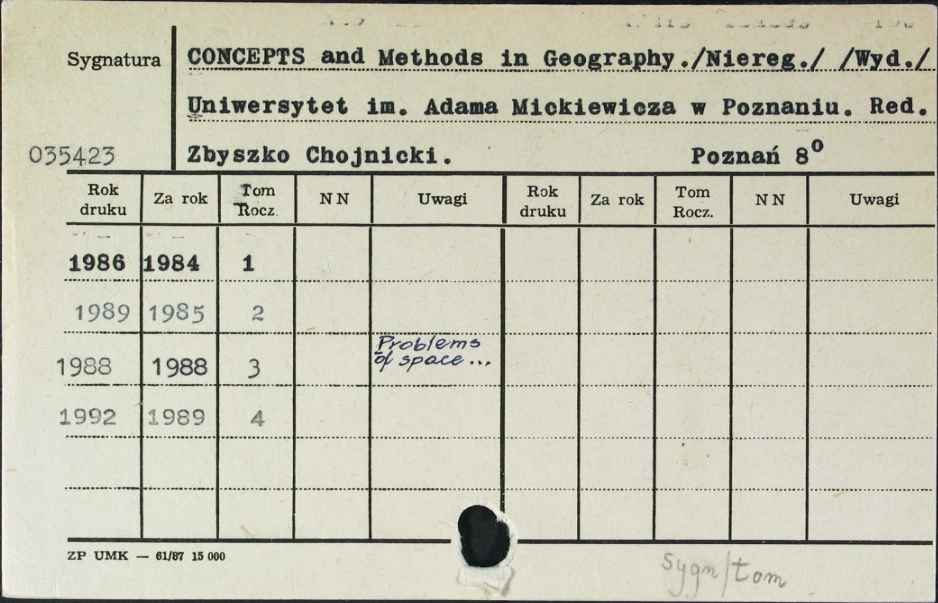 Sygnatura
CONCEPTS and Methods in Geography./Niereg./ /Wyd./
Uniwersytet im. Adama Mickiewicza w Poznaniu. Red.
035423 Zbyszko Chojnicki. Poznań 8⁰
Rok druku Za rok Tom Rocz. N N Uwagi Rok druku Za rok Tom Rocz. N N Uwagi
1986 1984 1
1989 1985 2
1988 1988 3 Problems of space...
1992 1989 4
ZP UMK — 61/87 15 000
sygn/tom